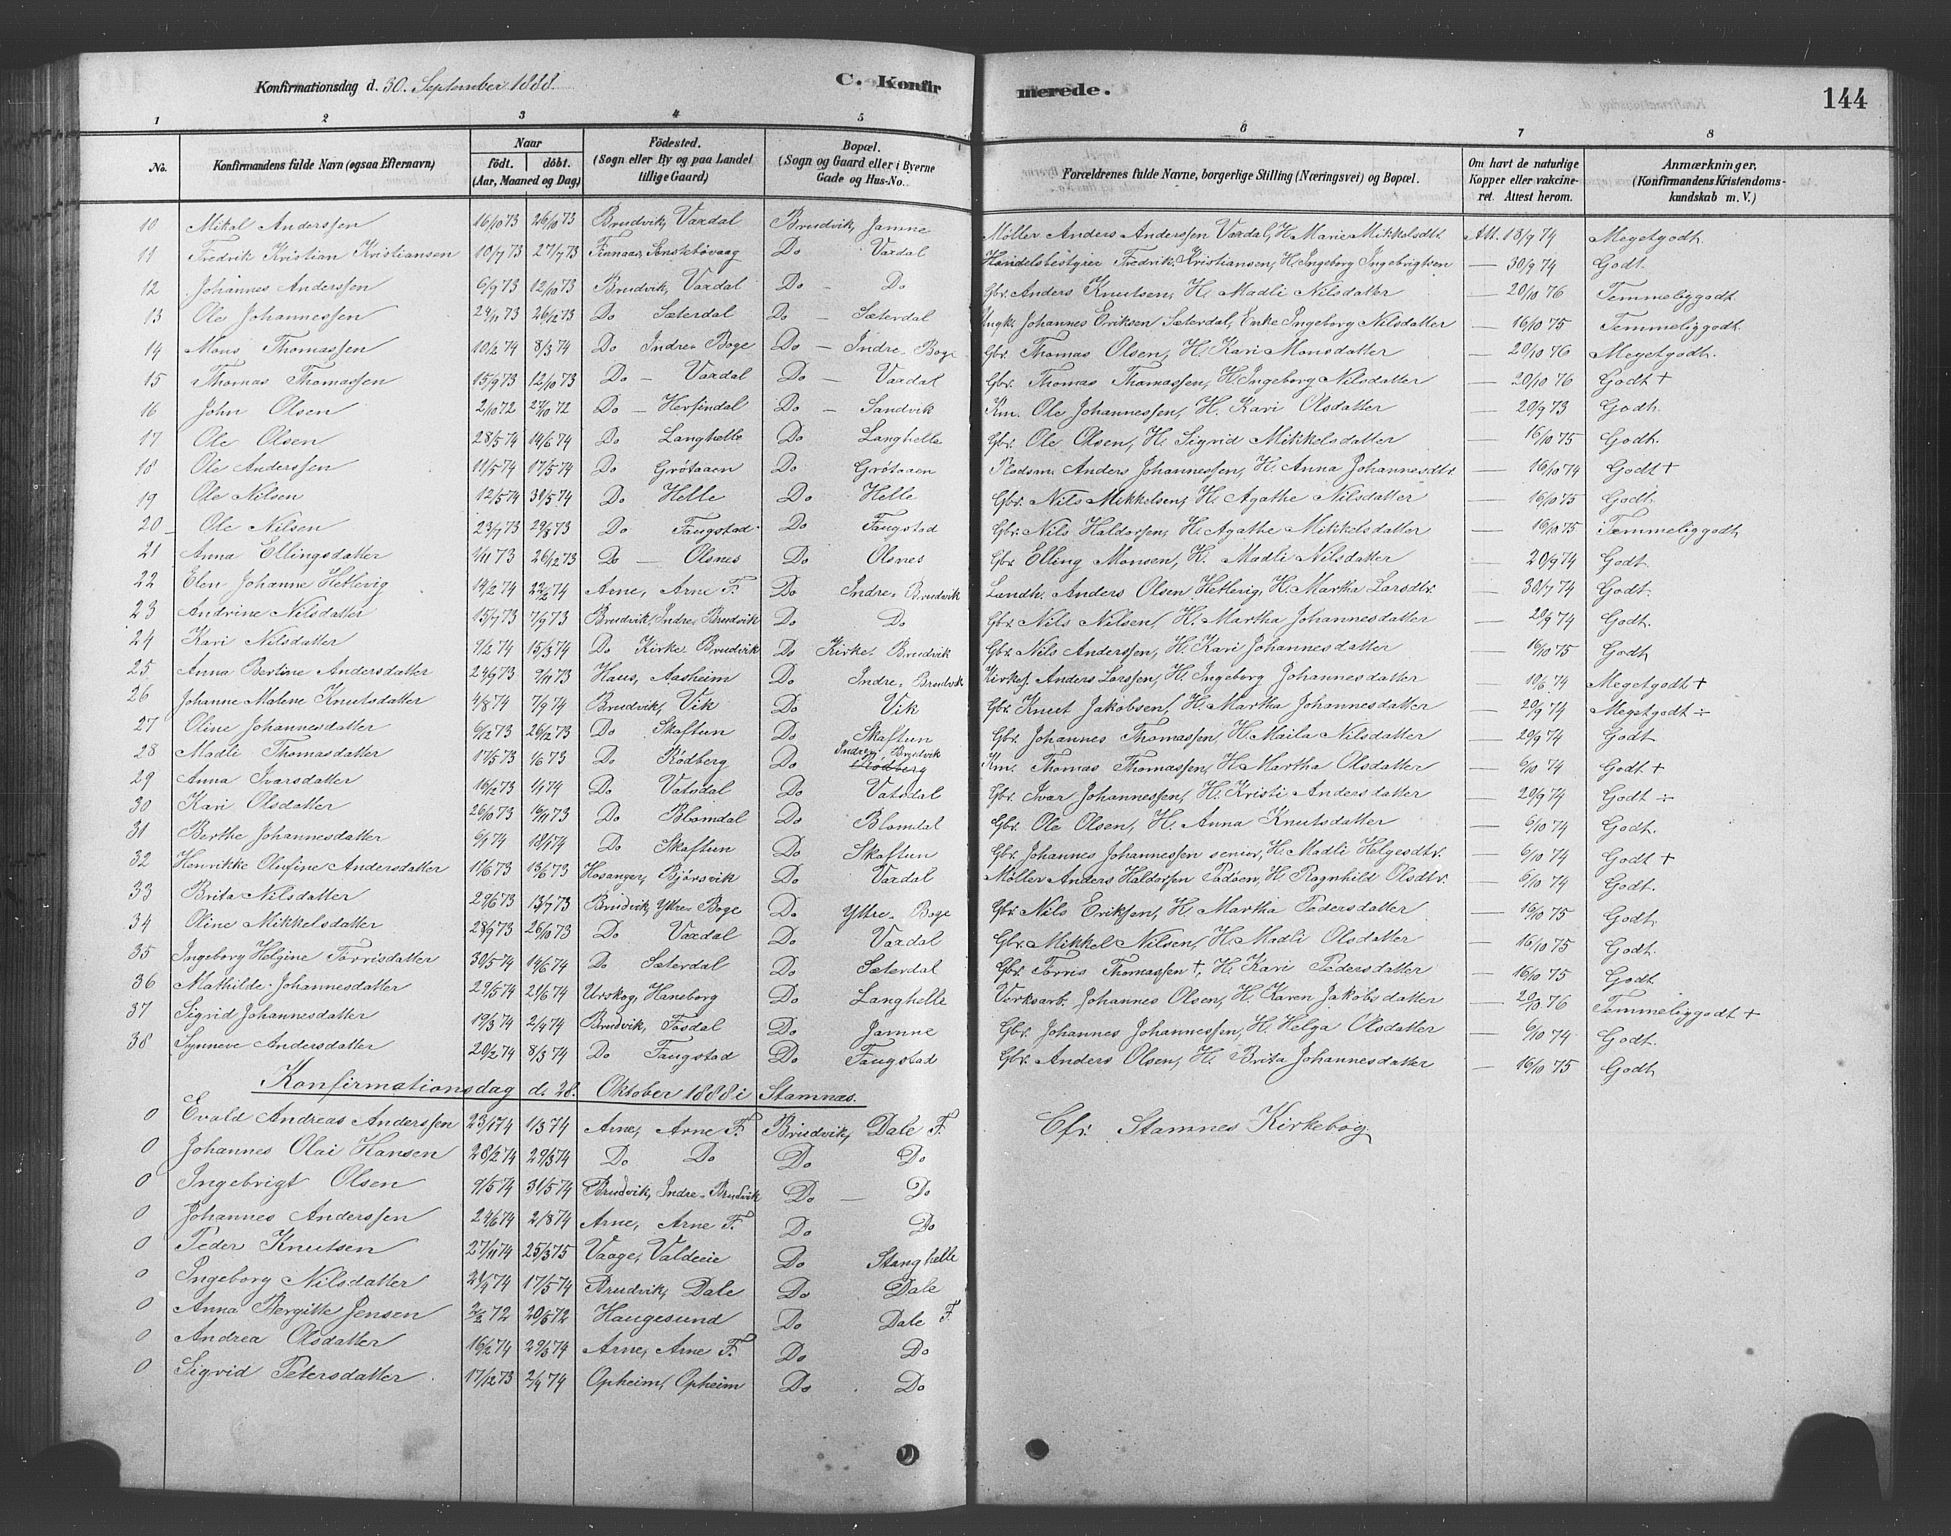 Konfirmationsdag d. 30. September 1888. C. Konfirmerede. 144
1 2 3 4 5 6 7 8
No. Konfirmandens fulde Navn (ogsaa Efternavn) Naar født. døbt. (Aar, Maaned og Dag) Fødested. (Sogn eller By og paa Landet tillige Gaard) Bopæl. (Sogn og Gaard eller i Byerne Gade og Hus-No. Forældrenes fulde Navne, borgerlige Stilling (Næringsvei) og Bopæl. Om havt de naturlige Kopper eller vakcineret. Attest herom. Anmærkninger, (Konfirmandens Kristendomskundskab m. V.)
10 Mikal Anderssen 16/10 73 26/10 73 Brudvik, Vaxdal Brudvik, Jamne Møller Anders Anderssen Vaxdal, H. Marie Mikkelsdtr. Att. 18/9 74 Megetgodt.
11 Fredrik Kristian Kristiansen 10/7 73 27/7 73 Finnaas, Do Vaxdal Handelsbestyrer Fredrik Kristiansen, H. Ingeborg Ingebrigtsen — 30/9 74 Godt.
12 Johannes Anderssen 6/9 73 12/10 73 Brudvik, Vaxdal Do — Do Gbr. Anders Knutsen, H. Madli Nilsdatter — 20/10 76 Temmeliggodt
13 Ole Johannessen 24/11 73 26/12 73 Do Sæterdal Do — Sæterdal Ungk. Johannes Eriksen Sæterdal, Enke Ingeborg Nilsdatter — 16/10 75 Temmeliggodt.
14 Mons Thomassen 10/2 74 8/3 74 Do Indre-Boge Do — Indre-Boge Gbr. Thomas Olsen, H. Kari Monsdatter — 20/10 76 Megetgodt.
15 Thomas Thomassen 15/9 73 12/10 73 Do — Vaxdal Do — Vaxdal Gbr. Thomas Thomassen, H. Ingeborg Nilsdatter — 20/10 76 Godt +
16 John Olsen 2/10 72 27/10 72 Do — Herfindal Do — Sandvik Km. Ole Johannessen, H. Kari Olsdatter — 20/9 73 Godt.
17 Ole Olsen 28/5 74 14/6 74 Do Langhelle Do Langhelle Gbr. Ole Olsen, H. Sigrid Mikkelsdatter — 16/10 75 Godt.
18 Ole Anderssen 11/5 74 17/5 74 Do Grøtaaen Do Grøtaaen Pladsm. Anders Johannessen, H. Anna Johannesdtr. — 16/10 74 Godt +
19 Ole Nilsen 12/5 74 31/5 74 Do Helle Do Helle Gbr. Nils Mikkelsen, H. Agathe Nilsdatter — 16/10 75 Godt.
20 Ole Nilsen 23/7 73 24/8 73 Do Faugstad Do Faugstad Gbr. Nils Haldorsen, H. Agathe Mikkelsdatter — 16/10 75 Temmeliggodt.
21 Anna Ellingsdatter 1/11 73 26/12 73 Do — Olsnes Do Olsnes Gbr. Elling Monsen, H. Madli Nilsdatter — 20/9 74 Godt.
22 Elen Johanne Hetlevig 14/2 74 22/2 74 Arne, Arne F. Do Indre-Brudvik Landh. Anders Olsen Hetlevig, H. Martha Larsdtr. — 30/7 74 Godt.
23 Andrine Nilsdatter 15/7 73 7/9 73 Brudvik, Indre-Brudvik Do Do Gbr. Nils Nilsen, H. Martha Johannesdatter — 20/9 74 Godt.
24 Kari Nilsdatter 9/2 74 15/3 74 Do Kirke-Brudvik Do Kirke-Brudvik Gbr. Nils Anderssen, H. Kari Johannesdatter — 16/10 75 Godt,
25 Anna Bertine Andersdatter 24/9 73 9/11 73 Haus, Aasheim Do Indre-Brudvik Kirkes. Anders Larssen, H. Ingeborg Johannesdatter — 10/6 74 Megetgodt +
26 Johanne Malene Knutsdatter 4/8 74 7/9 74 Brudvik, Vik Do Vik Gbr. Knut Jakobsen, H. Martha Johannesdatter — 20/9 74 Megetgodt ÷
27 Oline Johannesdatter 6/12 73 26/12 73 Do Skaftun Do Skaftun Gbr. Johannes Thomassen, H. Maila Nilsdatter — 20/9 74 Godt
28 Madli Thomasdatter 17/5 73 1/6 73 Do Rødberg Do Indre-Brudvik Rødberg Km. Thomas Thomassen, H. Martha Olsdatter — 6/10 74 Godt +
29 Anna Ivarsdatter 16/12 73 1/1 74 Do Vatsdal Do Vatsdal Gbr. Ivar Johannessen, H. Kristi Andersdatter — 20/9 74 Godt ÷
30 Kari Olsdatter 26/10 73 16/11 73 Do Blomdal Do Blomdal Gbr. Ole Olsen, H. Anna Knutsdatter — 6/10 74 Godt.
31 Berthe Johannesdatter 6/1 74 18/1 74 Do Skaftun Do Skaftun Gbr. Johannes Johannessen senior, H. Madli Helgesdtr. — 6/10 74 Godt +
32 Henrikke Olufine Andersdatter 11/6 73 13/6 73 Hosanger, Bjørsvik Do Vaxdal Møller Anders Haldorsen Padøen, H. Ragnhild Olsdtr. — 6/10 74 Godt.
33 Brita Nilsdatter 29/6 73 13/7 73 Brudvik, Yttre-Boge Do Yttre-Boge Gbr. Nils Eriksen, H. Martha Pedersdatter — 16/10 75 Godt.
34 Oline Mikkelsdatter 28/9 73 26/10 73 Do Vaxdal Do Vaxdal Gbr. Mikkel Nilsen, H. Madli Olsdatter — 16/10 75 Godt.
35 Ingeborg Helgine Torrisdatter 30/5 74 14/6 74 Do Sæterdal Do Sæterdal Gbr. Torris Thomassen +, H. Kari Pedersdatter — 16/10 75 Godt
36 Mathilde Johannesdatter 29/5 74 21/6 74 Urskog, Haneborg Do Langhelle Verksarb. Johannes Olsen, H. Karen Jakobsdatter — 20/10 76 Temmeliggodt +
37 Sigrid Johannesdatter 19/3 74 2/4 74 Brudvik, Fosdal Do Jamne Gbr. Johannes Johannessen, H. Helga Olsdatter — 6/10 74 Godt.
38 Synneve Andersdatter 20/2 74 8/3 74 Do Faugstad Do Faugstad Gbr. Anders Olsen, H. Brita Johannesdatter — 16/10 75 Godt,
Konfirmationsdag d. 28. Oktober 1888 i Stamnæs.
0 Evald Andreas Anderssen 23/1 74 1/3 74 Arne, Arne F. Brudvik, Dale F. Cfr. Stamnes Kirkebog
0 Johannes Olai Hansen 28/2 74 29/3 74 Do Do Do Do
0 Ingebrigt Olsen 9/5 74 31/5 74 Brudvik, Indre-Brudvik Do — Do
0 Johannes Anderssen 24/6 74 2/8 74 Arne, Arne F. Do Do
0 Peder Knutsen 27/11 74 25/3 75 Vaage, Valdeie Do Stanghelle
0 Ingeborg Nilsdatter 17/5 74 Brudvik, Dale Do Dale
0 Anna Bergitte Jensen 2/2 72 20/5 72 Haugesund Do Dale F.
0 Andrea Olsdatter 16/2 74 29/3 74 Arne, Arne F. Do Do
0 Sigrid Petersdatter 17/12 73 2/4 74 Opheim, Opheim Do Do